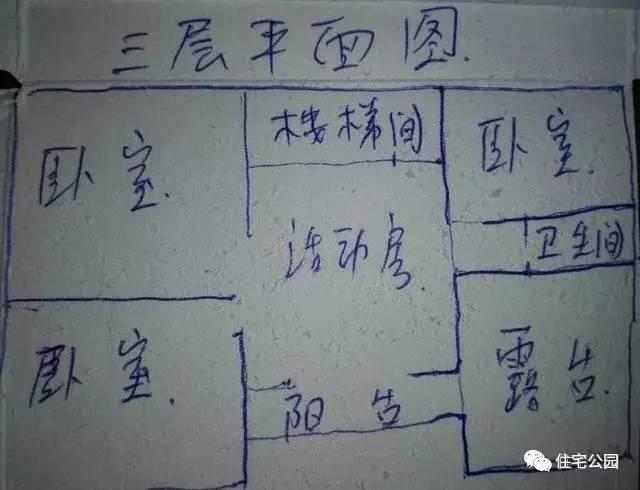 三层平面图.
卧室.
楼梯间
卧室.
活动房.
卫生间
卧室.
阳台
露台.
住宅公园